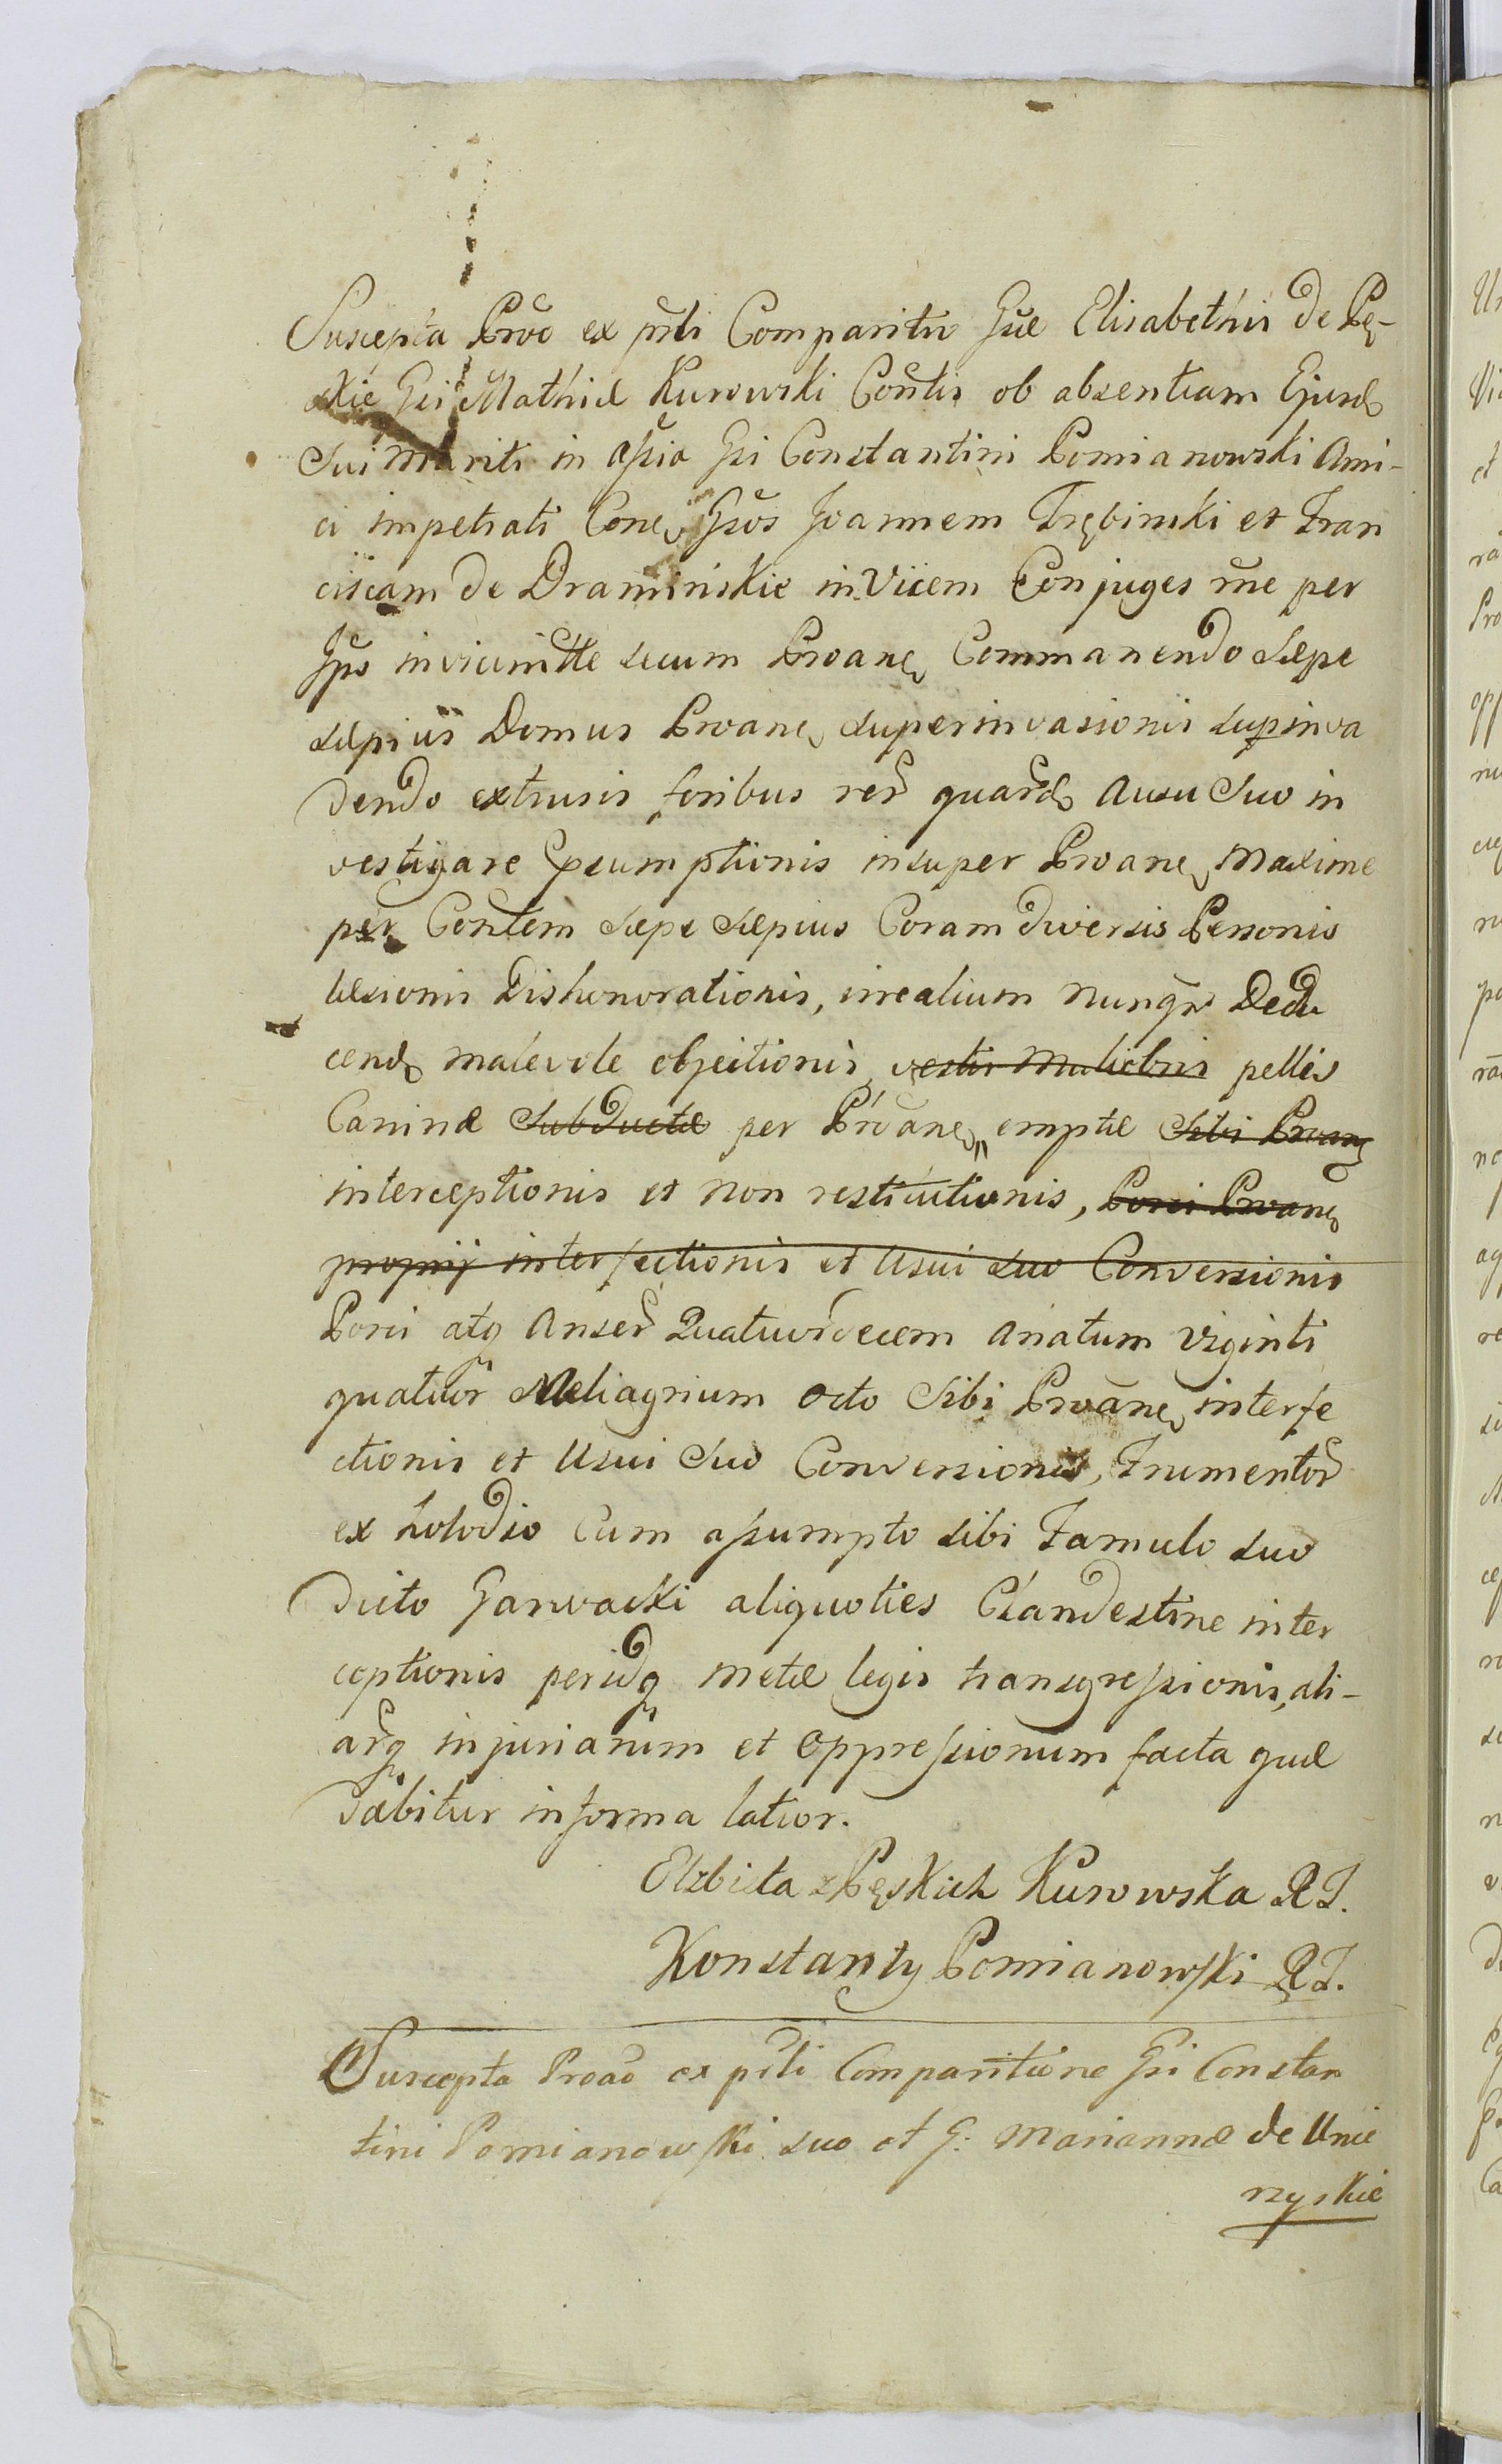 Suscepta Prõo ex pñli Comparitio Gsæ Elisabethis de Pę-
skie Gsi Mathiæ Kurowski Contis ob absentiam Ejusd
Sui Mariti in assia Gsi Constantini Pomianowski Ami-
ci impetrati Cone Gsos Joannem Trębinski et Fran
ciscam de Draminskie in Vicem Conjuges rñe per
Ipso invicinitte secum Proane Commanendo Sæpe
sæpius Domus Proane superinvasionis supinva
dendo extrusis foribus rer quard Ausu Suo in
vestigare psumptionis insuper Proane Maxime
per Contem sæpe sæpius Coram diversis Personis
læsionis Dishonorationis, irrealium nunq Dedu
cend malevole objectionis, vestis Muliebris pellis
Caninæ Subductæ per Proane, emptæ Sibi Proane
interceptionis et non restitutionis, Porci Proane
proprij interfectionis et Usui suo Conversionis
Porci atq Anser Quatuordecem Anatum viginti
quatuor Meliagrium octo Sibi Proane interfe
ctionis et Usui Suo Conversionis, Frumentor
ex Lolodio Cum assumpto sibi Famulo suo
dicto Garwacki aliquoties Clandestine inter
ceptionis peridq metæ legis transgressionis, ali-
arq injuriarum et oppressionum facta quæ
dabitur in forma latior.
Elzbieta z Pęskich Kurowska
Konstanty Pomianowski
Suscepta Proao ex pñli Comparitione Gsi Constan
tini Pomianowski suo et G: Mariannæ de Unie
rzyskie